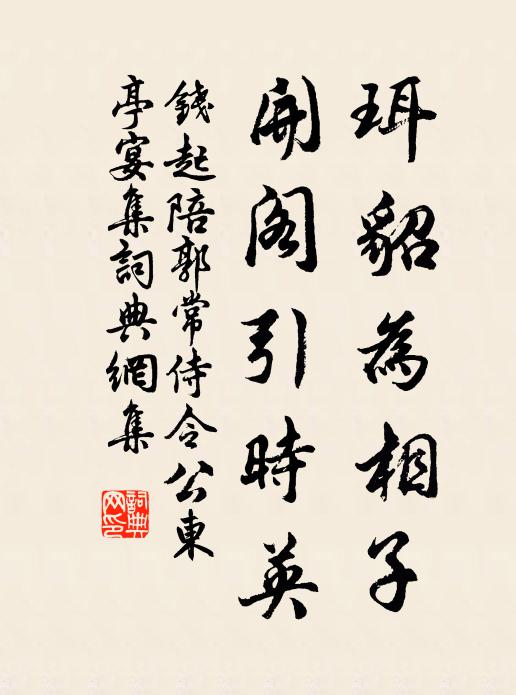 珥貂為相子
開閣引時英
錢起陪郭常侍令公東
亭宴集詞典網集
詞典网印